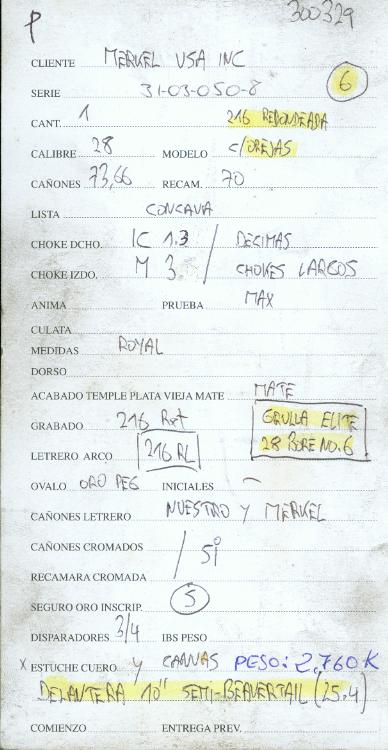 P 300329
CLIENTE MERKEL USA INC
SERIE 31-03-050-8 6
CANT. 1 216 REDONDEADA
CALIBRE 28 MODELO C/OREJAS
CAÑONES 73,66 RECAM. 70
LISTA CONCAVA
CHOKE DCHO. IC 1.3 / DECIMAS
CHOKE IZDO. M 3 / CHOKES LARGOS
ANIMA PRUEBA MAX
CULATA
MEDIDAS ROYAL
DORSO
ACABADO TEMPLE PLATA VIEJA MATE MATE
GRABADO 216 GRULLA ELITE
LETRERO ARCO 216 RL 28 BORE NO.6
OVALO ORO PEG INICIALES –
CAÑONES LETRERO NUESTRO Y MERKEL
CAÑONES CROMADOS / Sí
RECAMARA CROMADA
SEGURO ORO INSCRIP. 5
DISPARADORES 3/4 IBS PESO
X ESTUCHE CUERO Y CANNAS PESO: 2,760K
DELANTERA 10" SEMI-BEAVERTAIL (25.4)
COMIENZO ENTREGA PREV.